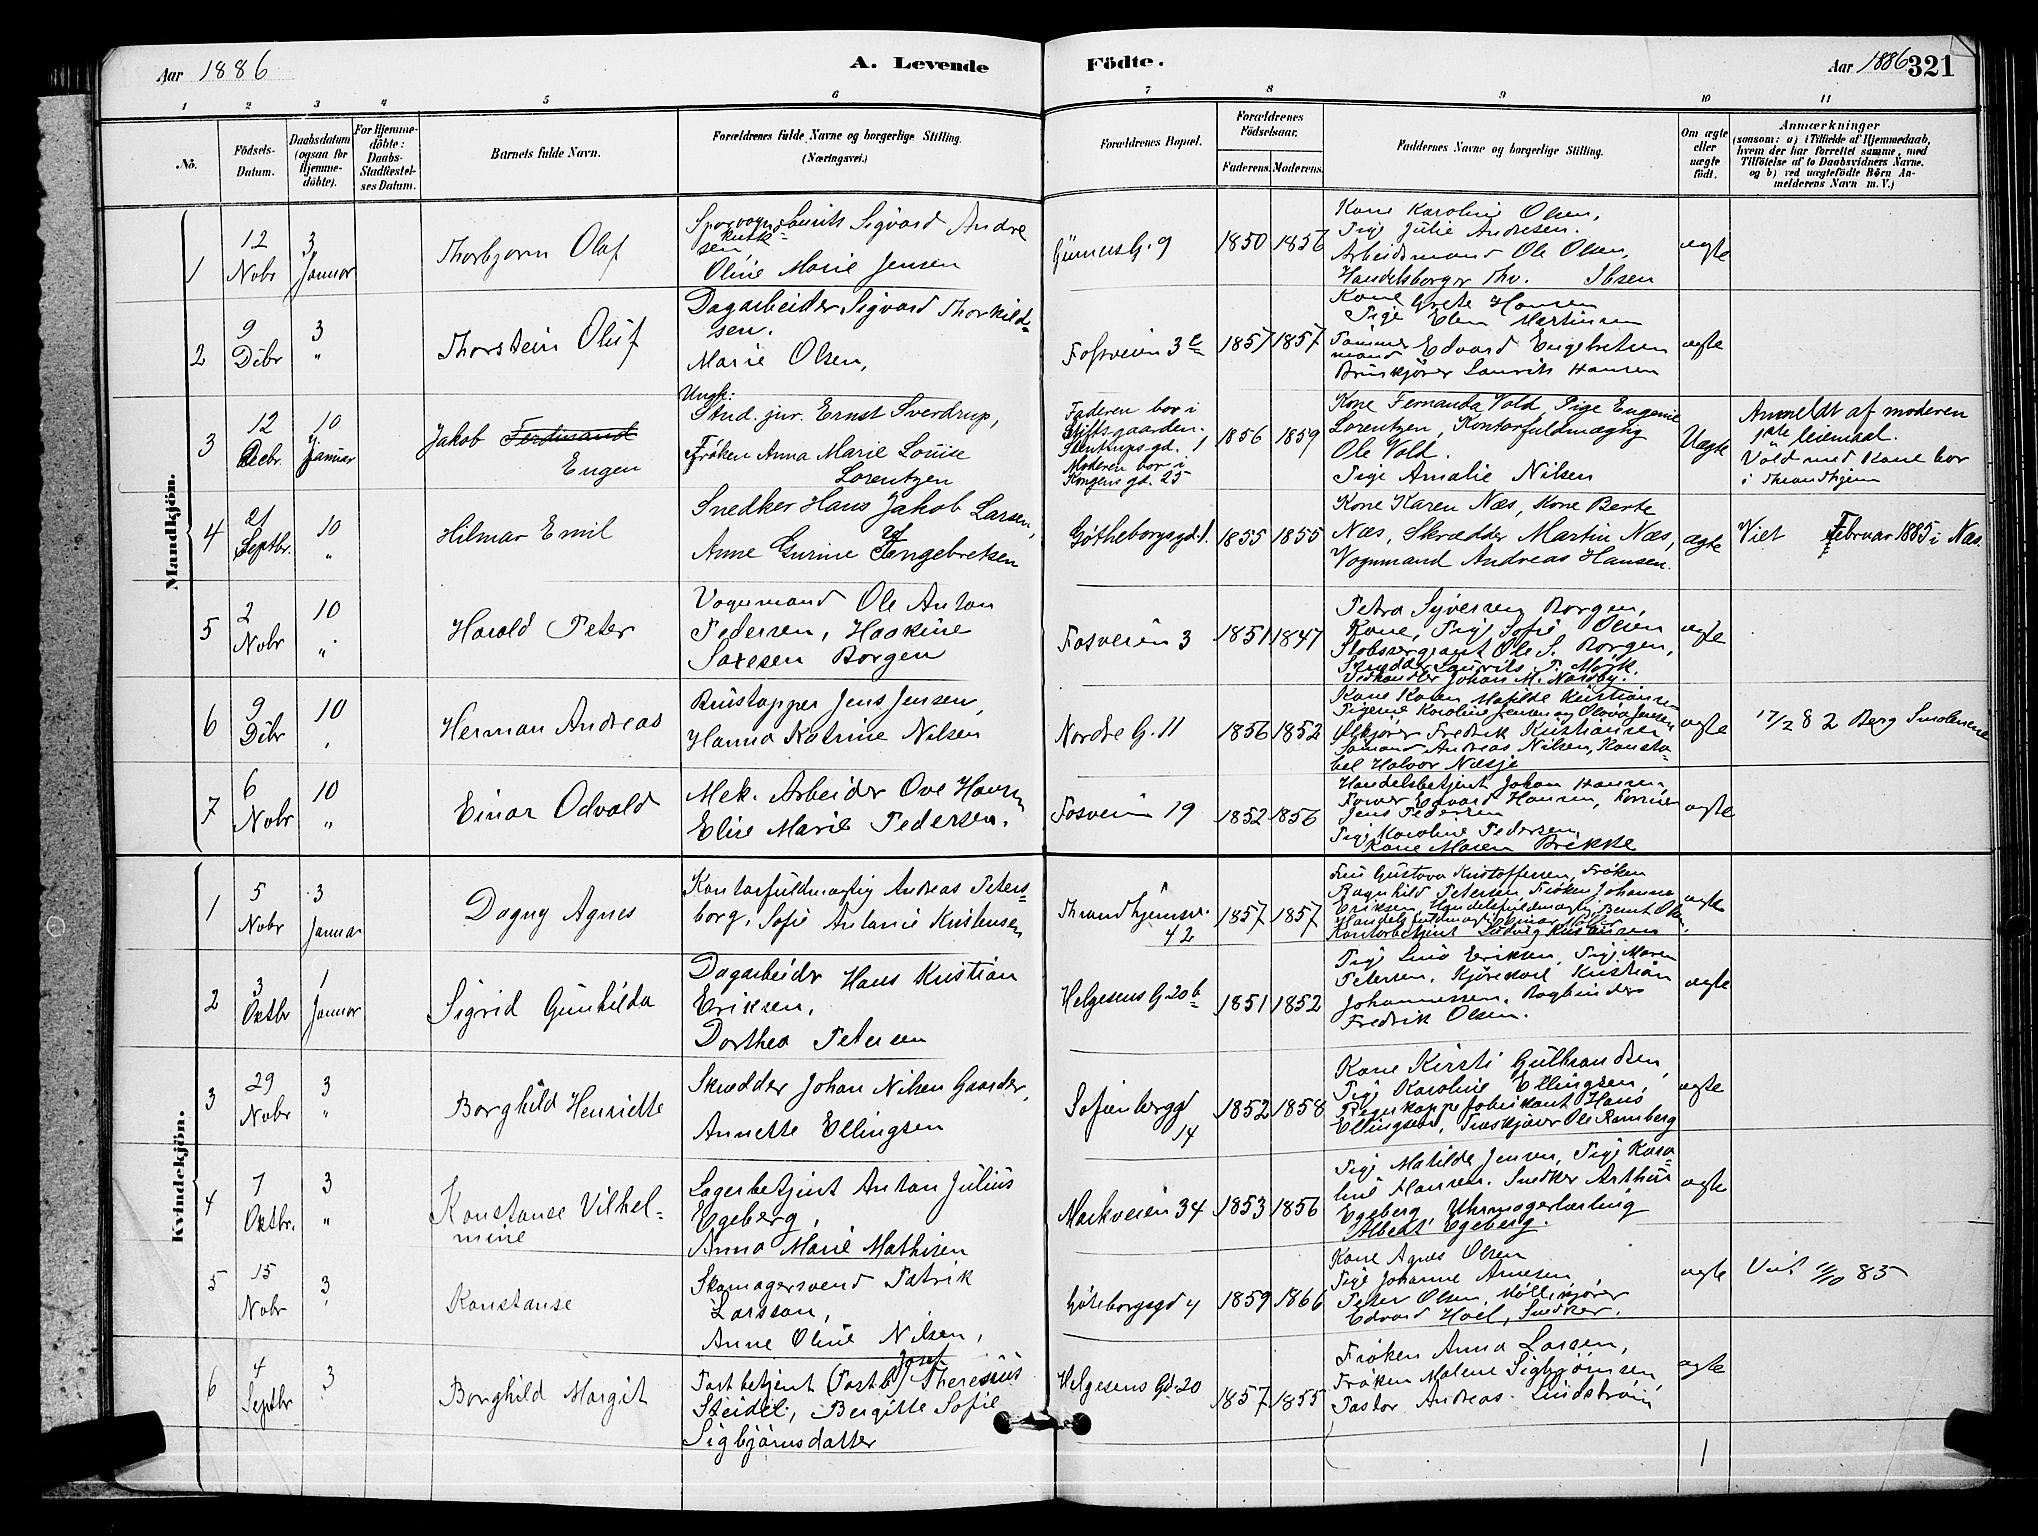 Aar 1886
A. Levende
Födte.
Aar 1886
321
1 2 3 4 5 6 7 8 9 10 11
No.
Födsels-
Datum.
Daabsdatum
(ogsaa for
Hjemme-
döbte).
For Hjemme-
döbte:
Daabs-
Stadfæstel-
ses Datum.
Barnets fulde Navn.
Forældrenes fulde Navne og borgerlige Stilling.
(Næringsvei.)
Forældrenes Bopæl.
Forældrenes
Födselsaar.
Faderens. Moderens.
Faddernes Navne og borgerlige Stilling.
Om ægte
eller
uægte
født.
Anmærkninger
(saasom: a) i Tilfælde af Hjemmedaab,
hvem der har forrettet samme, med
Tilföielse af to Daabsvidners Navne.
og b) ved uægtefödte Börn An-
melderens Navn m. V.)
Mandkjön.
1
12
Nobr
3
Januar
Thorbjørn Olaf
Sporvogns Laurits Sigvard Andre
kusk=
sen
Oline Marie Jensen
G. 9
1850 1856
Kone Karoline Olsen,
Pige Julie Andresen.
Arbeidsmand Ole Olsen,
Handelsborger Thv. Ibsen
ægte
2
9
Dcbr
3
"
Thorstein Oluf
Dagarbeider Sigvard Thorkild=
sen.
Marie Olsen,
Fossveien 3
1857 1857
Kone Grete Hansen
Pige Elen Martinsen
Tømmer Edvard Engebretsen
mand
Laurits Hansen
ægte
3
12
Decbr.
10
Januar
Jakob Ferdinand
Eugen
Ungk:
Stud. jur. Ernst Sverdrup,
Frøken Anna Marie Louise
Lorentzen
Faderen bor i
Stiftsgaarden.
Moderen bor i
Kongens gd. 25
1856 1859
Kone Fernanda Vold, Pige Eugenie
Lorentzen, Kontorfuldmægtig
Ole Vold.
Pige Amalie Nilsen
Uægte
Anmeldt af moderen
1ste leiemaal.
Vold med Kone bor
i Throndhjem
4
21
Septbr.
10
"
Hilmar Emil
Snedker Hans Jakob Larsen,
Anne Gurine Engebretsen
Gøtheborgsgd. 1.
1855 1855
Kone Karen Næs, Kone Berte
Næs, Skrædder Martin Næs,
Vognmand Andreas Hansen.
ægte
Viet Februar 1885 i Næs.
5
2
Nobr
10
"
Harald Peter
Vognmand Ole Anton
Pedersen, Haakine
Borgen
Fosveien 3
1851 1847
Petra Syversen Borgen,
Kone, Pige Sofie Olsen
Ole S. Borgen,
Skrædder Laurits P. Mørk.
Vedhandler Johan M. Næsby.
ægte
6
9
Dcbr
10
"
Herman Andreas
Jens Jensen,
Hanna Katrine Nilsen
Nordre G. 11
1856 1852
Kone Karen Matilde Kristiansen
Pigerne Karoline Jensen og Olava Jensen
Ølkjører Fredrik Kristiansen
Sømand Andreas Nilsen, Konsta-
bel Halvor Næsje
ægte
17/2 82 Berg Smolenene
7
6
Nobr
10
"
Einar Odvald
Mek. Arbeider Ove Hansen
Elise Marie Pedersen.
Fosveien 19
1852 1856
Handelsbetjent Johan Hansen,
Edvard Hansen,
Jens Pedersen
Pige Karoline Pedersen,
Kone Maren Brekke
ægte
Kvindekjön.
1
5
Nobr
3
Januar
Dagny Agnes
Kontorfuldmægtig Andreas Peters=
borg, Sofie Antonie Kristensen
Throndhjemsv.
42
1857 1857
Fru Gustava Kristoffersen, Frøken
Ragnhild Petersen, Frøken Johanna
Eriksen, Handelsfuldmægtig Bernt Olsen,
Handelsfuldmægtig
Kontorbetjent Ludvig Kristensen
ægte
2
3
Oktbr
1
Januar
Sigrid Gunhilda
Dagarbeider Hans Kristian
Eriksen,
Dorthea Petersen
Helgesens G 20 b
1851 1852
Pige Lina Eriksen, Pige Maren
Petersen, Kjørekarl Kristian
Johannessen, Bogbinder
Fredrik Olsen.
ægte
3
29
Nobr
3
"
Borghild Henriette
Skrædder Johan Nilsen Gaarder,
Annette Ellingsen
Sofienberggd
14
1852 1858
Kone Kirsti Gulbrandsen,
Pige Karoline Ellingsen,
Hans
Ellingsen, Ole Ramberg
ægte
4
7
Oktbr.
3
"
Konstanse Vilhel=
mine
Lagerbetjent Anton Julius
Egeberg,
Anna Marie Mathisen
Markveien 34
1853 1856
Pige Matilde Jensen, Pige Karo=
line Hansen. Snedker Arthur
Egeberg Uhrmagerlærling
Albert Egeberg.
ægte
5
15
Nobr
3
"
Konstanse
Skomagersvend Patrik
Larsson,
Anne Oline Nilsen,
Gøteborgsgd 4
1859 1866
Kone Agnes Olsen
Pige Johanne Arnesen
Peter Olsen, Møllekjører
Edvard Hoel, Snedker.
ægte
Viet 11/10 85
6
4
Septbr
3
Borghild Margit
Postbetjent (Postb) Josef Theresius
Steidel, Bergitte Sofie
Sigbjørnsdatter
Helgesens Gd. 20
1857 1855
Frøken Anna Larsen,
Frøken Malene Sigbjørnsen
Pastor Andreas Lindstrøm
ægte
1